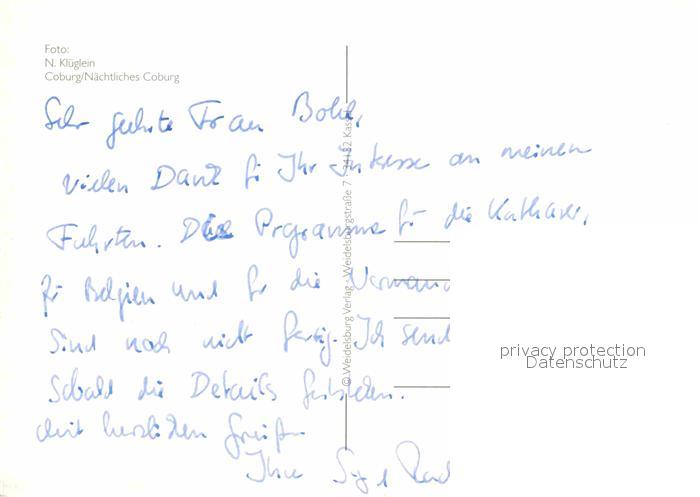 Foto:
N. Klüglein
Coburg/Nächtliches Coburg
Sehr geehrte Frau
vielen Dank für Ihr Interesse an meinen
Fahrten. Die Programme für die Katharer,
für Belgien und für die Norman
sind noch nicht fertig. Ich send
sobald die Details feststehen.
Mit herzlichen Grüßen
Ihre
© Weidelsburg Verlag · Weidelsburgstraße 7 · 34132 Kassel
privacy protection
Datenschutz